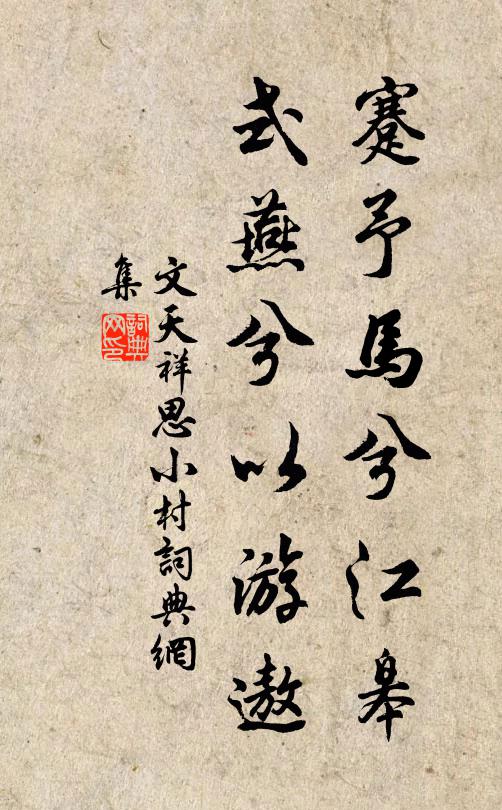 蹇予馬兮江皋
式燕兮以游遨
文天祥思小村詞典網
集
詞典网印